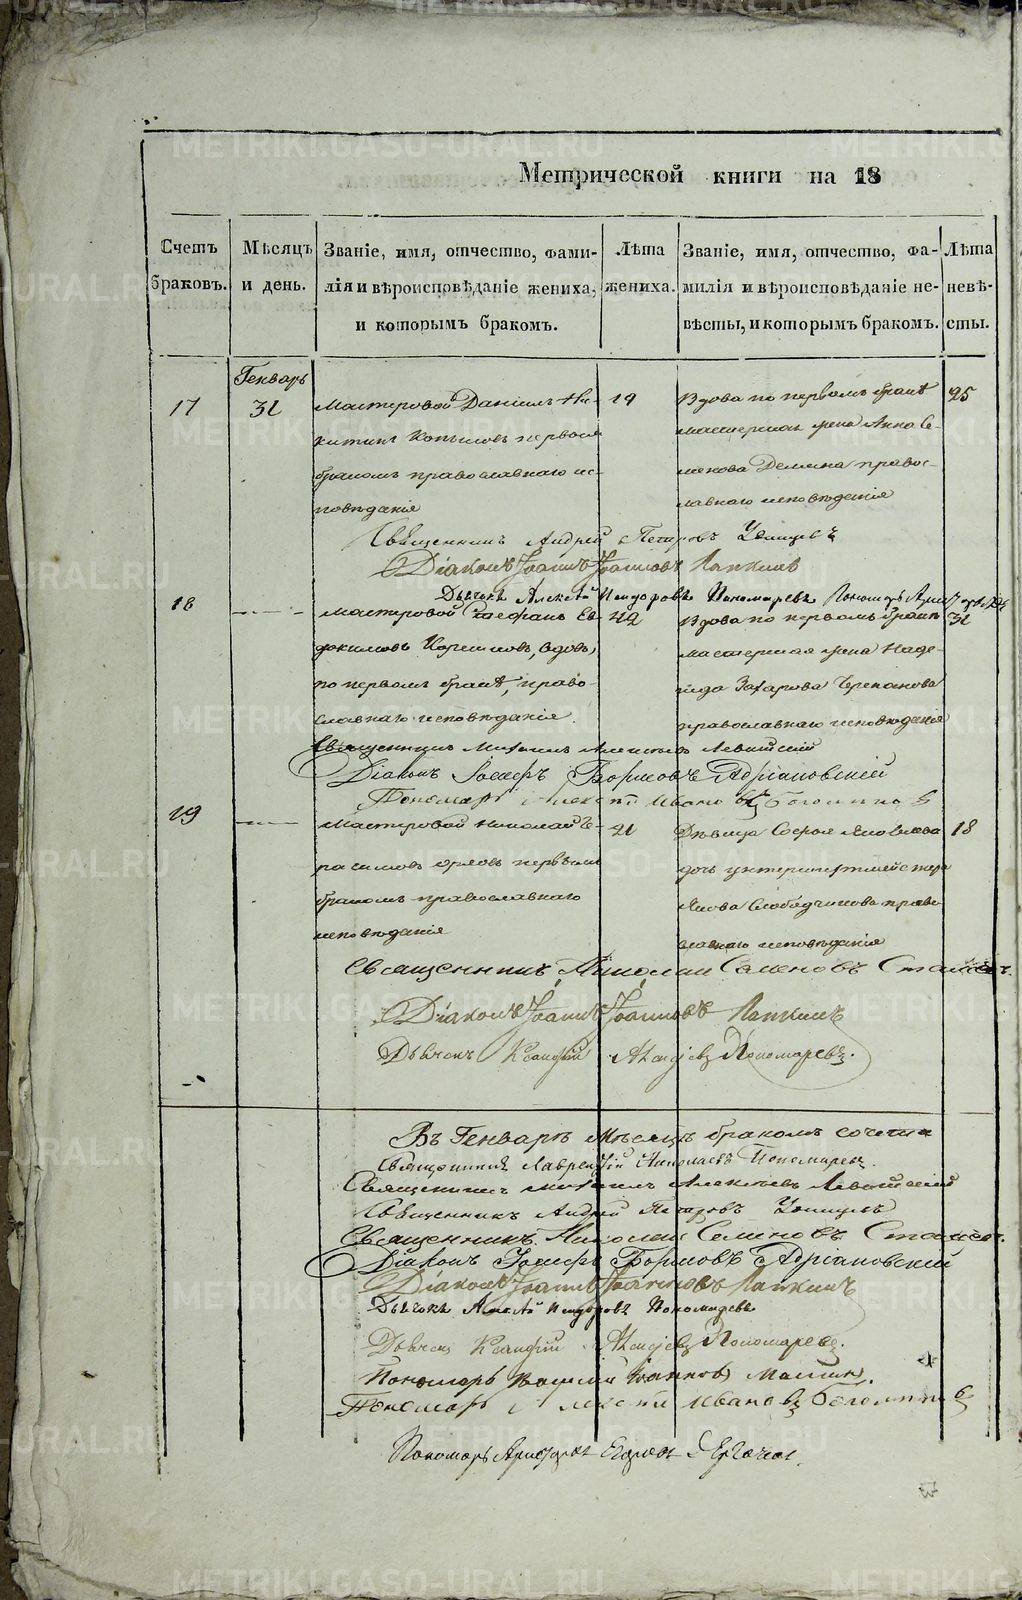 METRIKI.GASO-URAL.RU
Метрической книги на 18
Счетъ браковъ.
Мѣсяцъ и день.
Званіе, имя, отчество, фами-
лія и вѣроисповѣданіе жениха,
и которымъ бракомъ.
Лѣта жениха.
Званіе, имя, отчество, фа-
милія и вѣроисповѣданіе не-
вѣсты, и которымъ бракомъ.
Лѣта невѣ-
сты.
Генварь
17
31
Мастеровой Даніилъ Ни-
китинъ Копыловъ первымъ
бракомъ православнаго ис-
повѣданія
19
Вдова по первомъ бракѣ
мастерская жена Анна Се-
менова Демина право-
славнаго исповѣданія
25
Священникъ Андрей Петровъ
Діаконъ Іоаннъ Іоанновъ Лапкинъ
Дьячокъ Алексѣй Исидоровъ Пономаревъ Пономарь
18
Мастеровой Стефанъ Ев-
докимовъ вдовъ
по первомъ бракѣ, право-
славнаго исповѣданія
42
Вдова по первомъ бракѣ
мастерская жена Наде-
жда Захарова Черепанова
православнаго исповѣданія
31
Священникъ Михаилъ Алексѣевъ Левитскій
Діаконъ Іосифъ Борисовъ Адріановскій
Пономарь Алексѣй Ивановъ
19
Мастеровой Николай Ге-
расимовъ Орловъ первымъ
бракомъ православнаго
исповѣданія
21
Дѣвица Софья Яковлева
дочь
Якова Слободчикова право-
славнаго исповѣданія
18
Священникъ Николай Семеновъ
Діаконъ Іоаннъ Іоанновъ Лапкинъ
Дьячекъ Алексѣевъ Пономаревъ.
Въ Генварѣ мѣсяцѣ бракомъ
Священникъ Лаврентій Николаевъ Пономаревъ
Священникъ Михаилъ Алексѣевъ Левитскій
Священникъ Андрей Петровъ
Священникъ Николай Семеновъ
Діаконъ Іосифъ Борисовъ Адріановскій
Діаконъ Іоаннъ Іоанновъ Лапкинъ
Дьячокъ Алексѣй Исидоровъ Пономаревъ
Дьячекъ Алексѣевъ Пономаревъ.
Пономарь Василій Іоанновъ
Пономарь Алексѣй Ивановъ
Пономарь